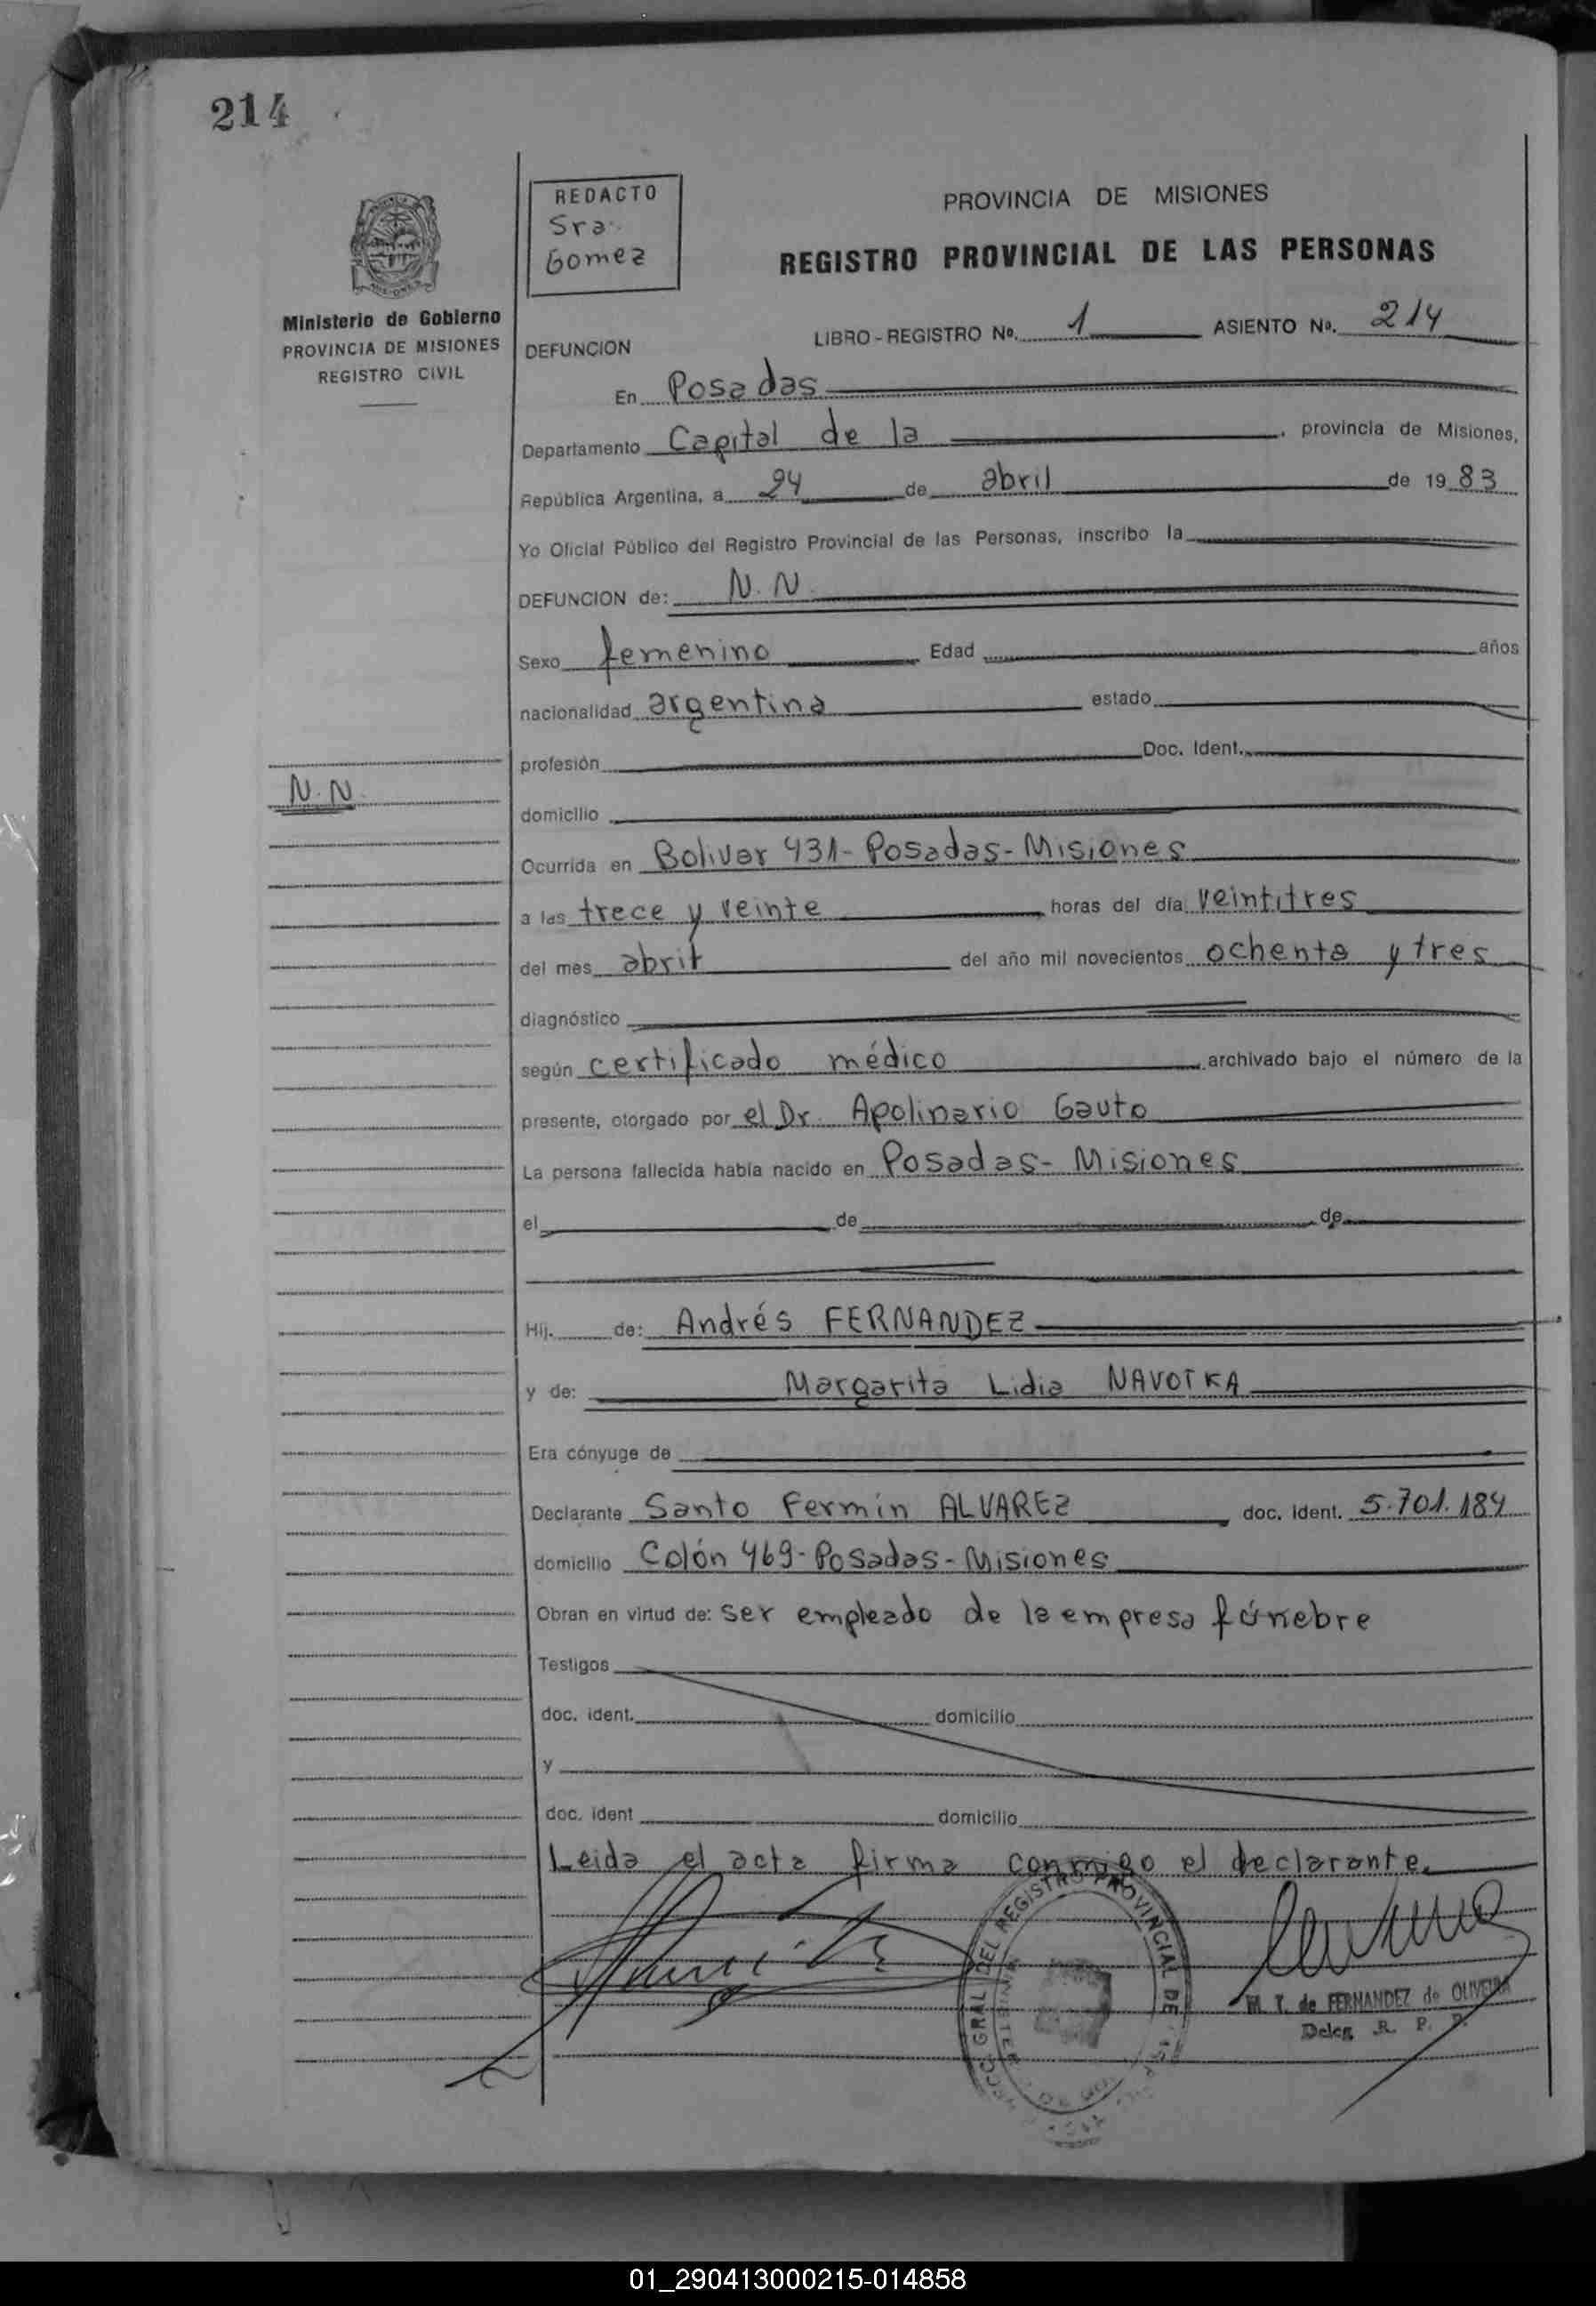 214
REDACTO
Sra.
Gomez
PROVINCIA DE MISIONES
REGISTRO PROVINCIAL DE LAS PERSONAS
Ministerio de Gobierno
PROVINCIA DE MISIONES
REGISTRO CIVIL
DEFUNCION
LIBRO - REGISTRO Nº. 1 ASIENTO Nº. 214
En Posadas
Departamento Capital de la , provincia de Misiones,
República Argentina, a 24 de abril de 19 83
Yo Oficial Público del Registro Provincial de las Personas, inscribo la
DEFUNCION de: N. N
Sexo femenino Edad años
nacionalidad argentina estado
profesión Doc. Ident.
N. N.
domicilio
Ocurrida en Bolivar 431- Posadas- Misiones
a las trece y veinte horas del día veintitres
del mes abril del año mil novecientos ochenta y tres
diagnóstico
según certificado médico archivado bajo el número de la
presente, otorgado por el Dr. Apolinario Gauto
La persona fallecida había nacido en Posadas- Misiones
el de de
Hij. de: Andrés FERNANDEZ
y de: Margarita Lidia NAVOTKA
Era cónyuge de
Declarante Santo Fermín ALVAREZ doc. ident. 5.701.184
domicilio Colón 469- Posadas- Misiones
Obran en virtud de: ser empleado de la empresa fúnebre
Testigos
doc. ident. domicilio
y
doc. ident domicilio
Leida el acta firma conmigo el declarante.
GRAL DEL REGISTRO PROVINCIAL DE
M. T. de FERNANDEZ de OLIVEIRA
Deleg. R. P. P.
01_290413000215-014858